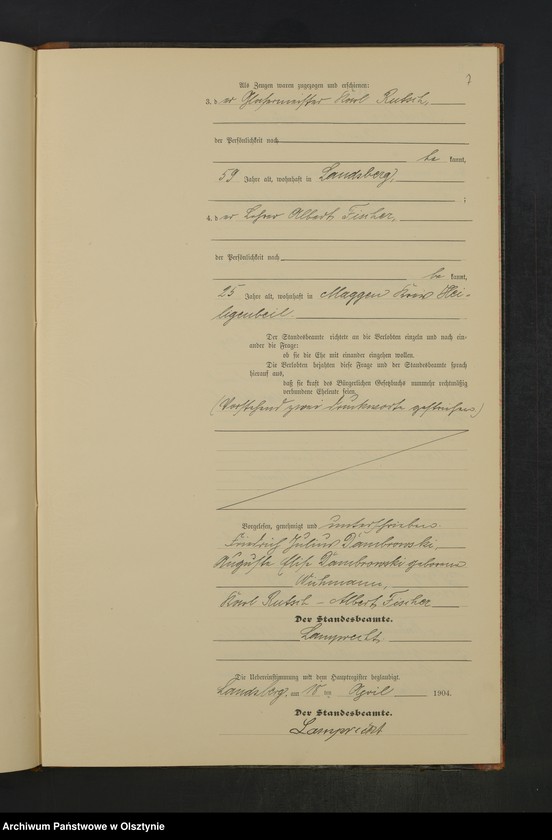 7
Als Zeugen waren zugezogen und erschienen:
3. der Glasermeister Karl Rutsch,
der Persönlichkeit nach
be kannt,
59 Jahre alt, wohnhaft in Landsberg,
;
4. der Lehrer Albert Fischer,
der Persönlichkeit nach
be kannt,
25 Jahre alt, wohnhaft in Maggen Kreis Hei-
ligenbeil
Der Standesbeamte richtete an die Verlobten einzeln und nach ein-
ander die Frage:
ob sie die Ehe mit einander eingehen wollen.
Die Verlobten bejahten diese Frage und der Standesbeamte sprach
hierauf aus,
daß sie kraft des Bürgerlichen Gesetzbuchs nunmehr rechtmäßig
verbundene Eheleute seien.
(Vorstehend zwei Druckworte gestrichen)
Vorgelesen, genehmigt und unterschrieben
Friedrich Julius Dambrowski,
Auguste Elise Dambrowski geborene
Karl Rutsch – Albert Fischer
Der Standesbeamte.
Lamprecht
Die Uebereinstimmung mit dem Hauptregister beglaubigt.
Landsberg, am 18 ten April 1904.
Der Standesbeamte.
Lamprecht
Archiwum Państwowe w Olsztynie